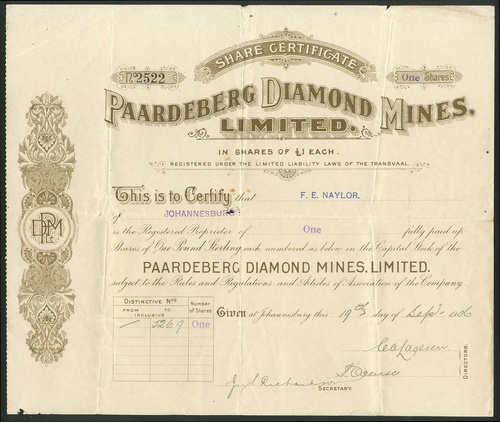 SHARE CERTIFICATE
No 2522
One Shares
PAARDEBERG DIAMOND MINES.
LIMITED.
IN SHARES OF £1 EACH.
REGISTERED UNDER THE LIMITED LIABILITY LAWS OF THE TRANSVAAL.
This is to Certify that F. E. NAYLOR.
of JOHANNESBURG
is the Registered Proprietor of One fully paid up
Shares of One Pound Sterling each numbered as below in the Capital Stock of the
PAARDEBERG DIAMOND MINES, LIMITED.
subject to the Rules and Regulations and Articles of Association of the Company.
DISTINCTIVE Nos
Number of Shares
FROM TO
INCLUSIVE
5269 One
Given at Johannesburg this 19th day of Sept 1906
DIRECTORS.
J. Richardson
SECRETARY.
PDM